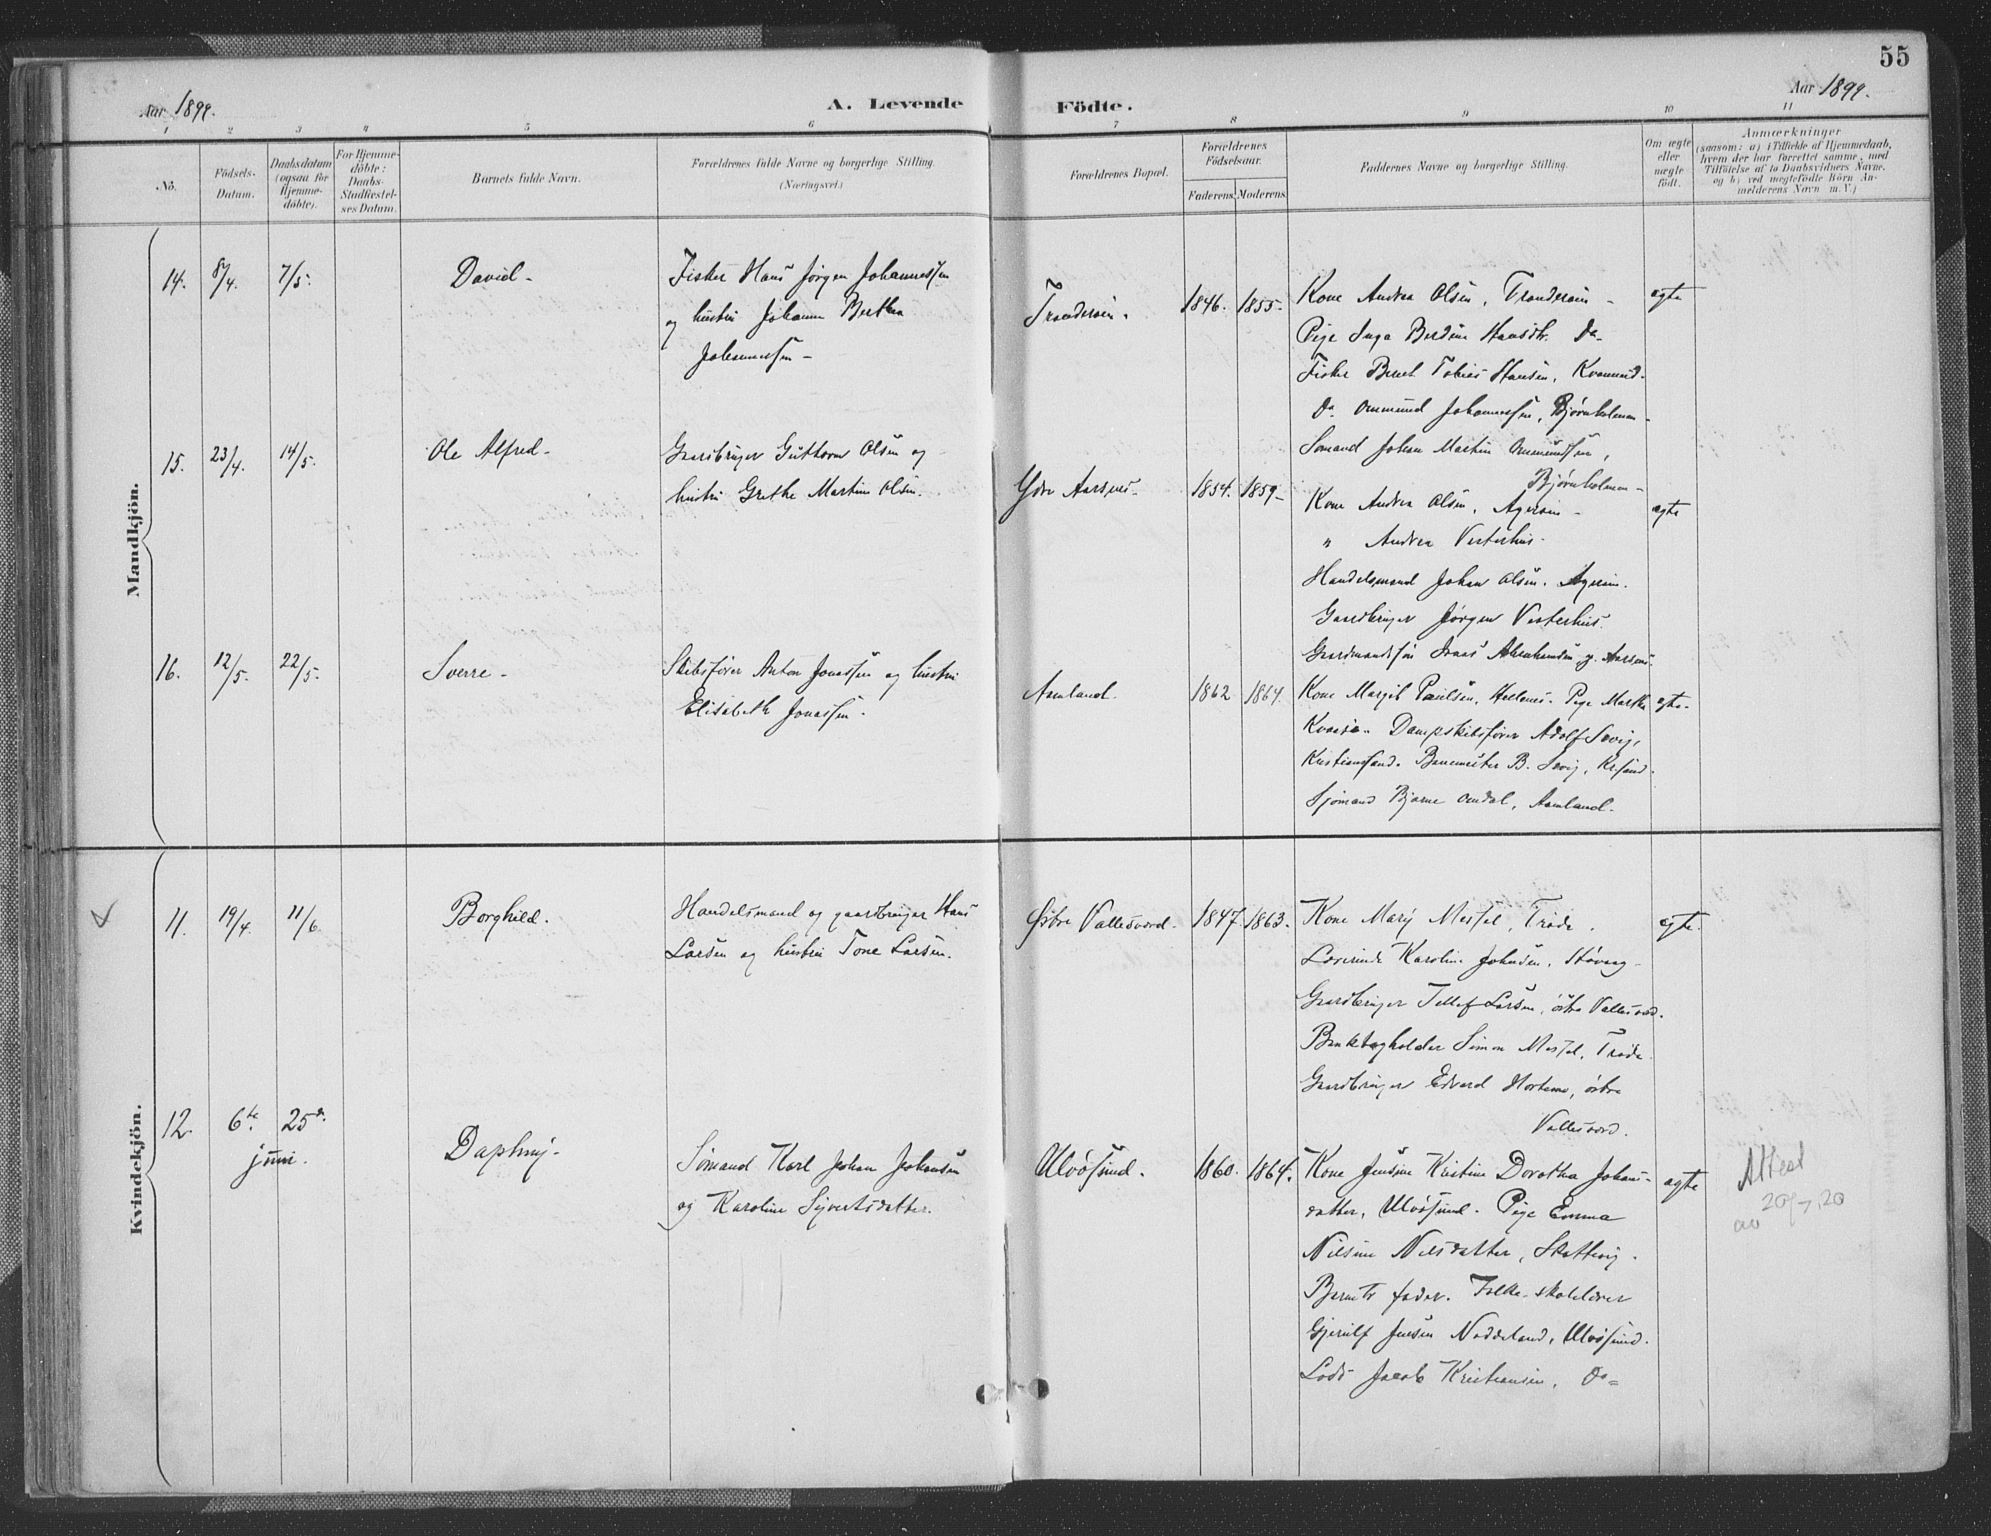 55
Aar 1899.
A. Levende Födte.
Aar 1899.
1 2 3 4 5 6 7 8 9 10 11
No.
Födsels-Datum.
Daabsdatum (ogsaa for Hjemme-döbte).
For Hjemme-döbte: Daabs-Stadfæstel-ses Datum.
Barnets fulde Navn.
Forældrenes fulde Navne og borgerlige Stilling.
(Næringsvei.)
Forældrenes Bopæl.
Forældrenes Födselsaar.
Faderens Moderens
Faddernes Navne og borgerlige Stilling.
Om ægte eller uægte födt.
Anmærkninger
(saasom: a) i Tilfælde af Hjemmedaab,
hvem der har forrettet samme, med
Tilföielse af to Daabsvidners Navne.
og b) ved uægtefödte Börn An-
melderens Navn m. V.)
Mandkjön.
14. 8/4. 7/5. David-
Fisker Hans Jörgen Johannessen
og hustru Johanne Bertha
Johannessen-
1846. 1855-
Kone Andrea Olsen,
Pige Inga Berdine Hansdtr. Do-
Fisker Bernt Tobias Hansen,
Do. Ommund Johannessen, Bjørnholmen-
Sømand Johan Martin Ommundsen,
Bjørnholmen-
ægte
15. 23/4. 14/5. Ole Alfred-
Gaardbruger Guttorm Olsen og
hustru Grethe Martine Olsen.
Ydre Aarsnes- 1854. 1859-
Kone Andrea Olsen,
" Andrea Vesterhus-
Handelsmand Johan Olsen.
Gaardbruger Jørgen Vesterhus.
Gaardmandssøn
ægte
16. 12/5. 22/5. Sverre-
Skibsfører Anton Jonassen og hustru
Elisabeth Jonassen-
Aamland. 1862 1864.
Kone Margit Paulsen, Pige Martha
Dampskibsfører Adolf
Kristianssand-
Sjømand Bjarne Omdal, Aamland-
ægte-
Kvindekjön.
11. 19/4. 11/6. Borghild.
Handelsmand og gaardbruger Hans
Larsen og hustru Tone Larsen.
Østre Vallesværd- 1847. 1863.
Kone Mary Messel,
Lærerinde Karoline Johnsen,
Gaardbruger Tellef Larsen, østre Vallesværd.
Bankbogholder Simon Messel,
Gaardbruger Edvard Hortemo, østre
Vallesværd.
ægte.
12. 6te 25de
juni.
Daphny-
Sømand Karl Johan Johansen
og Karoline Syvertsdatter.
Ulvøsund. 1860. 1864.
Kone Jensine Kristine Dorothea Johans-
datter, Ulvøsund- Pige Emma
Nilsine Nilsdatter, Skottevig-
Barnets fader. Folkeskolelærer
Gjerulf Jensen Noddeland, Ulvøsund.
Lods Jacob Kristiansen, Do-
ægte
Attest